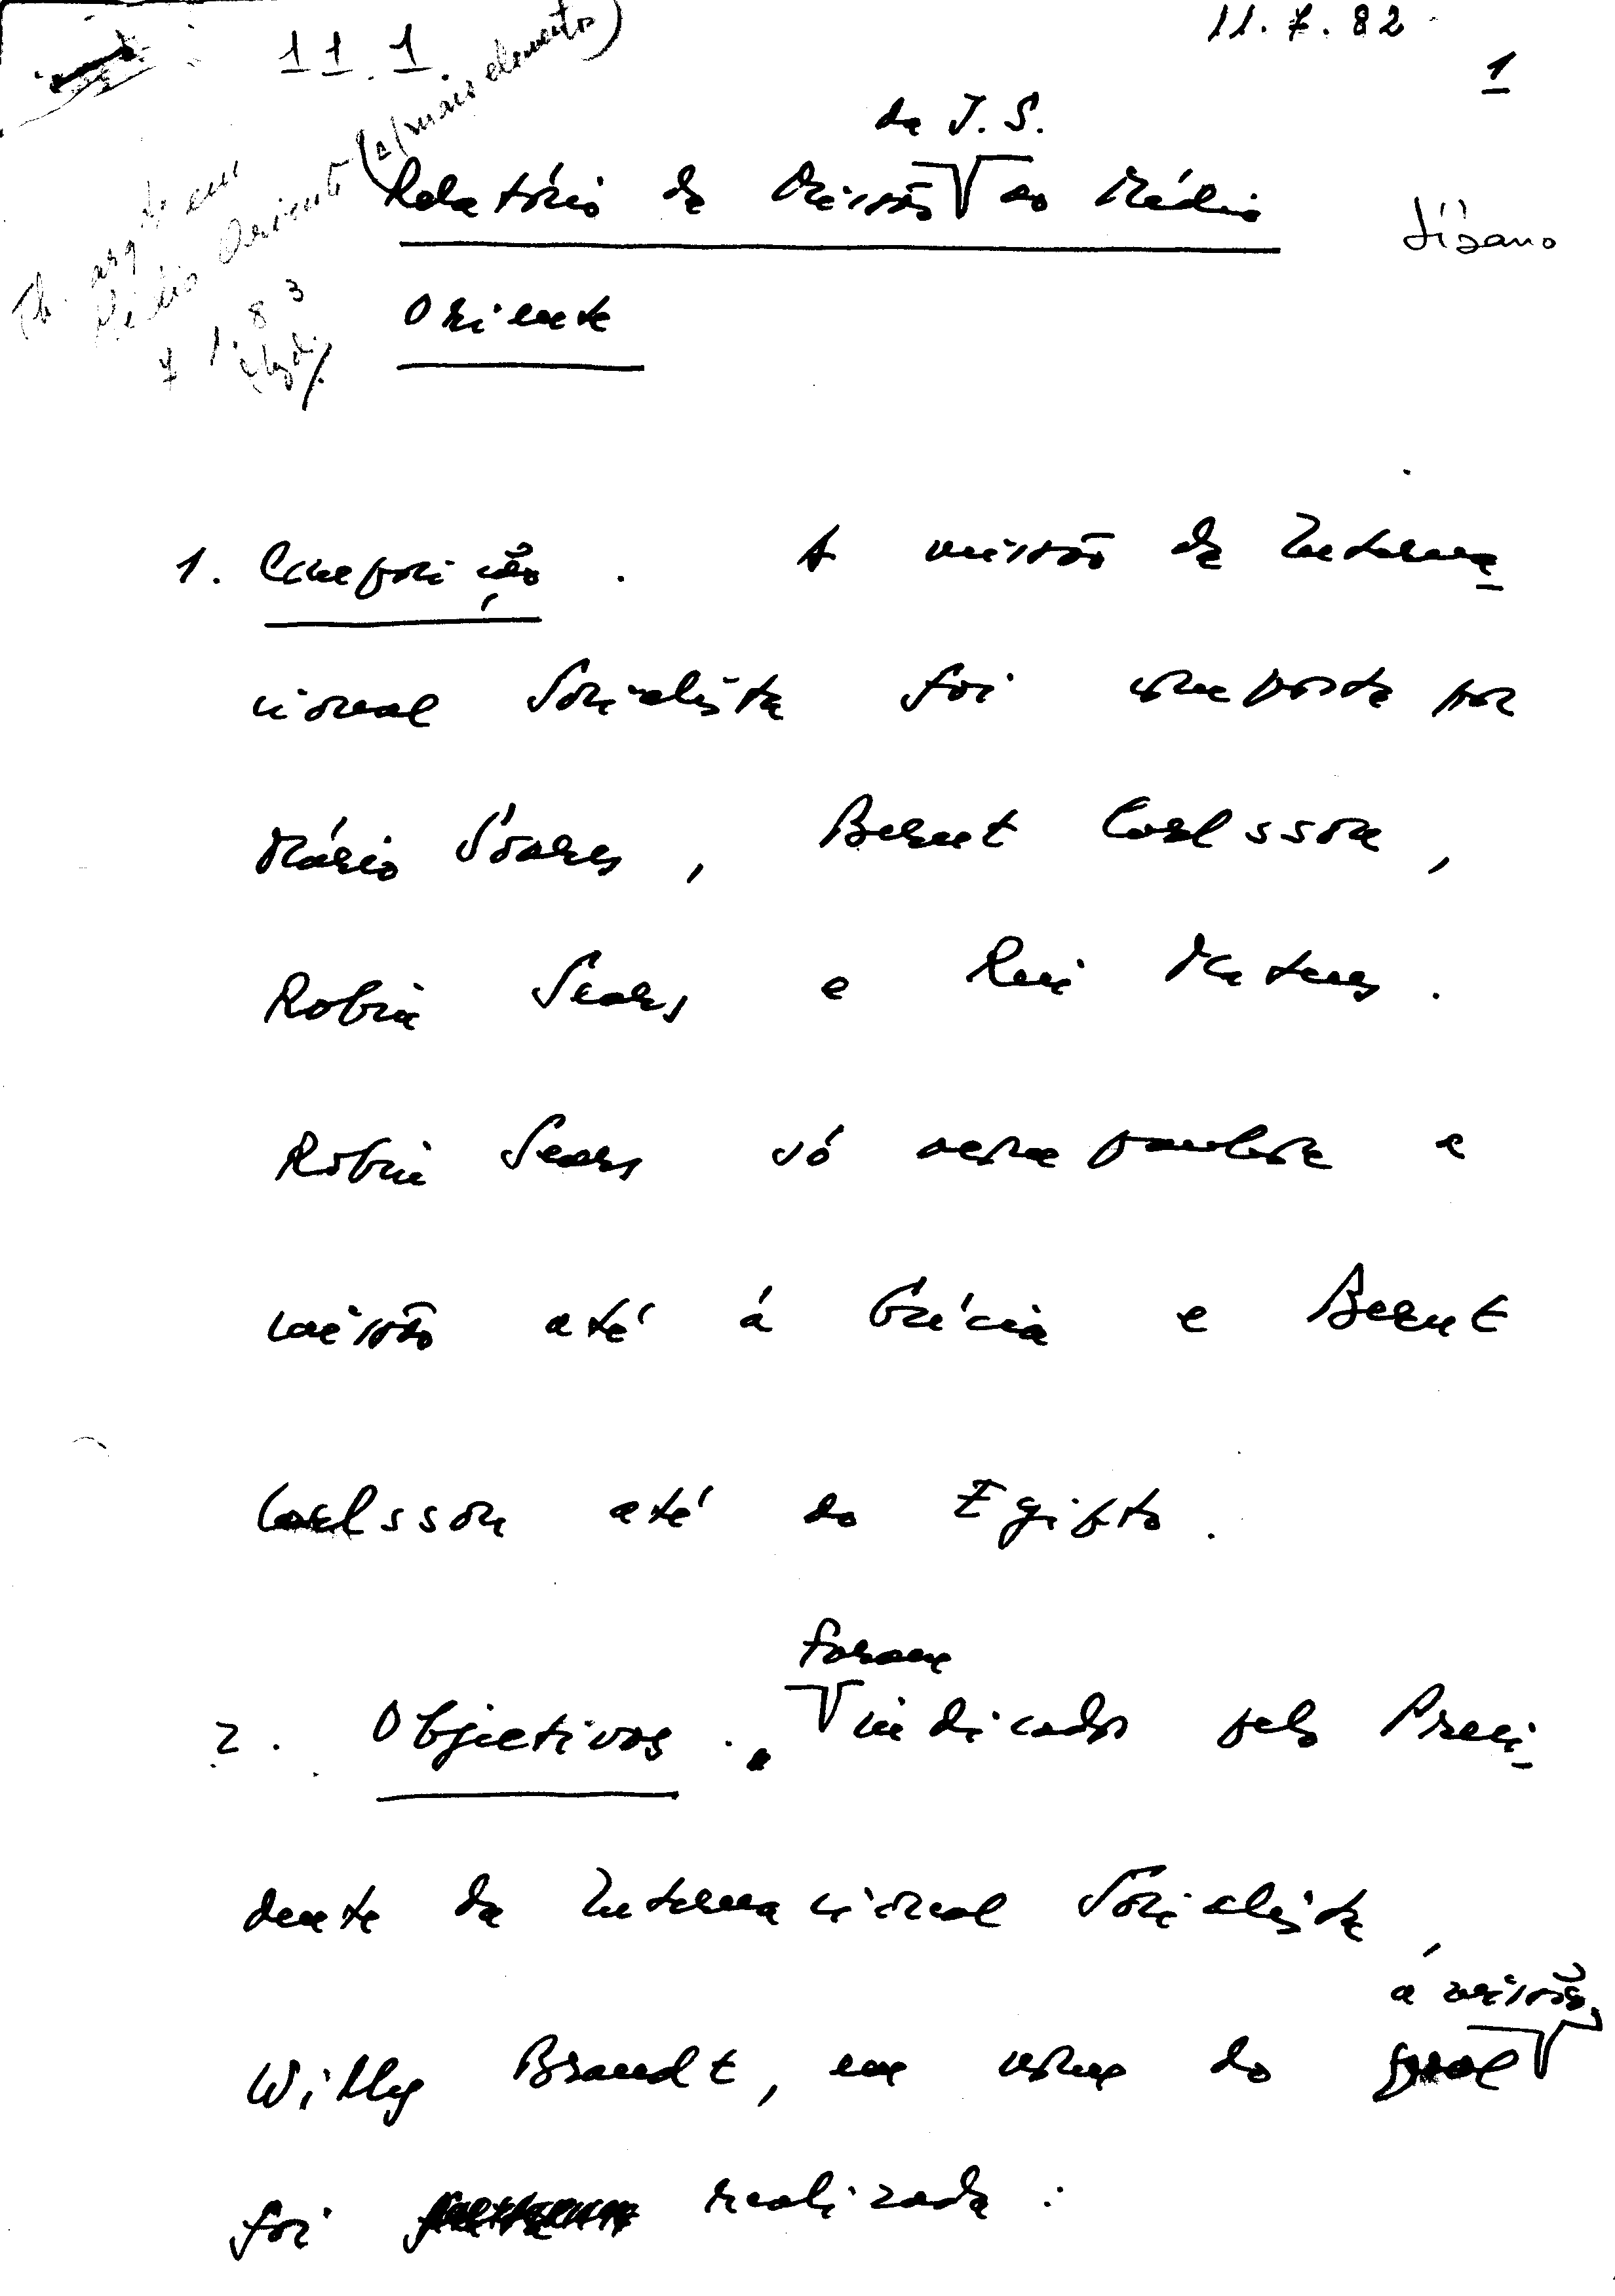 11.1.
11.7.82
1
(c/ mais elementos)
Médio Oriente
7.1.83
da I.S.
Relatório da Missão ao Médio
Oriente
Líbano
1. Composição. A missão da Interna
cional Socialista foi composta por
Mário Soares, Bernt Carlsson,
Robin Sears e Rui Mateus.
Robin Sears só acompanhou a
missão até à Grécia e Bernt
Carlsson até ao Egipto.
foram
2. Objetivos. indicados pelo Presi
dente da Internacional Socialista,
a missão,
Willy Brandt, em nome do qual
foi realizada: